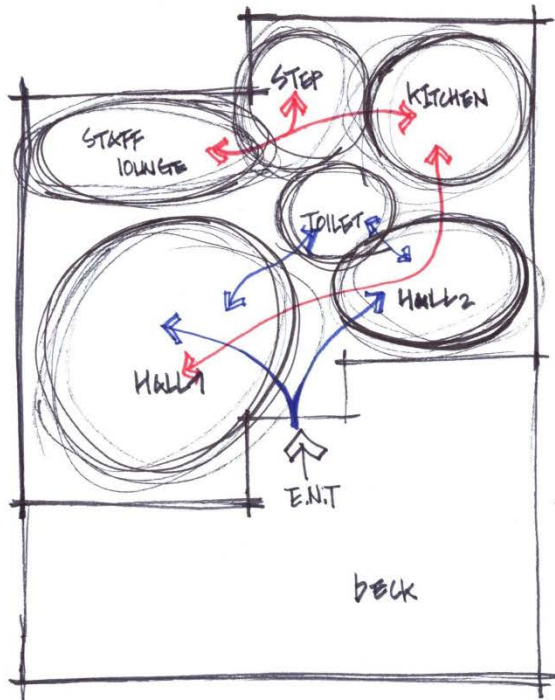 STEP
KITCHEN
STAFF
LOUNGE
TOILET
HALL2
HALL1
E.N.T
DECK